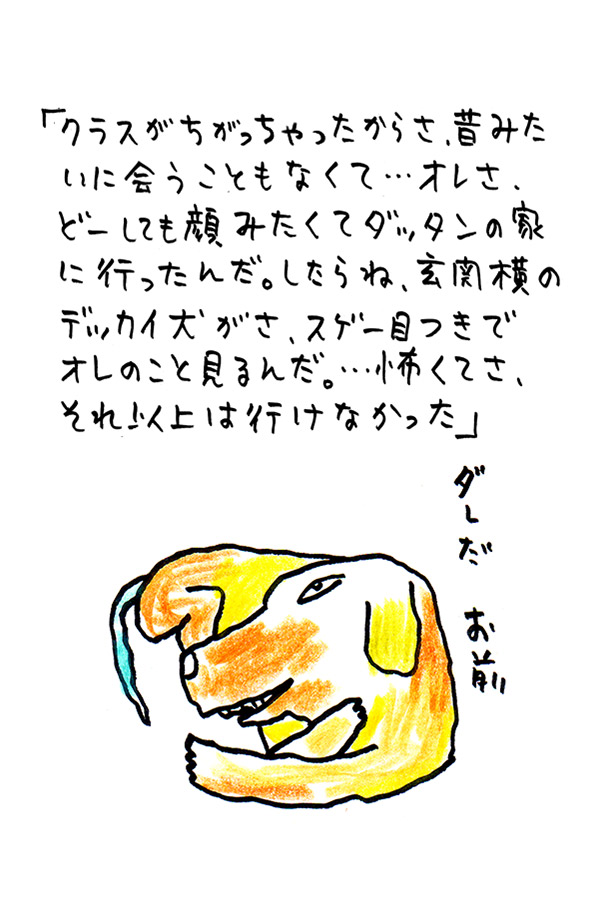 「クラスがちがっちゃったからさ、昔みた
いに会うこともなくて…オレさ、
どーしても顔みたくてダッタンの家
に行ったんだ。したらね、玄関横の
デッカイ犬がさ、スゲー目つきで
オレのこと見るんだ。…怖くてさ、
それ以上は行けなかった」
ダレだ お前